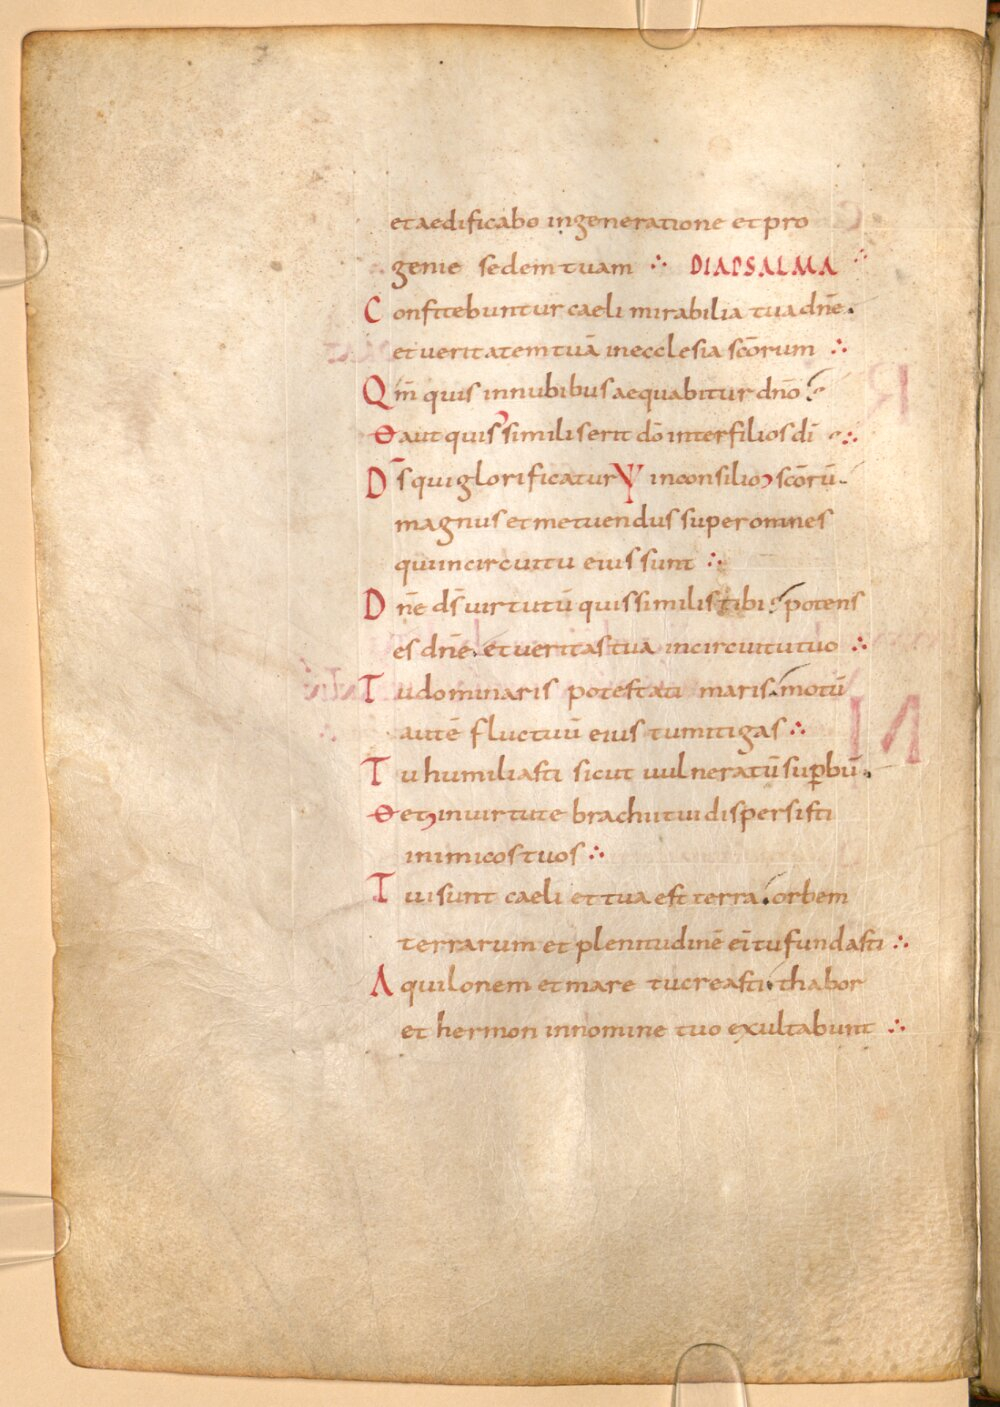 et aedificabo in generatione et pro
genie sedem tuam ∴ DIAPSALMA
Confitebuntur caeli mirabilia tua dn̄e.
et veritatem tuā in ecclesia sc̄orum ∴
Qm̄ quis in nubibus aequabitur dn̄o
aut quis similis erit dō inter filios dī ∴
D̄s qui glorificatur in consilio sc̄orū.
magnus et metuendus super omnes
qui in circuitu eius sunt ∴
Dn̄e ds̄ virtutū quis similis tibi potens
es dn̄e. et veritas tua in circuitu tuo ∴
Tu dominaris potestati maris. motū
autē fluctuū eius tu mitigas ∴
Tu humiliasti sicut vulneratū sup̱bū.
et in virtute brachii tui dispersisti
inimicos tuos ∴
Tui sunt caeli et tua est terra. orbem
terrarum et plenitudinē eī tu fundasti ∴
Aquilonem et mare tu creasti. thabor
et hermon in nomine tuo exultabunt ∴